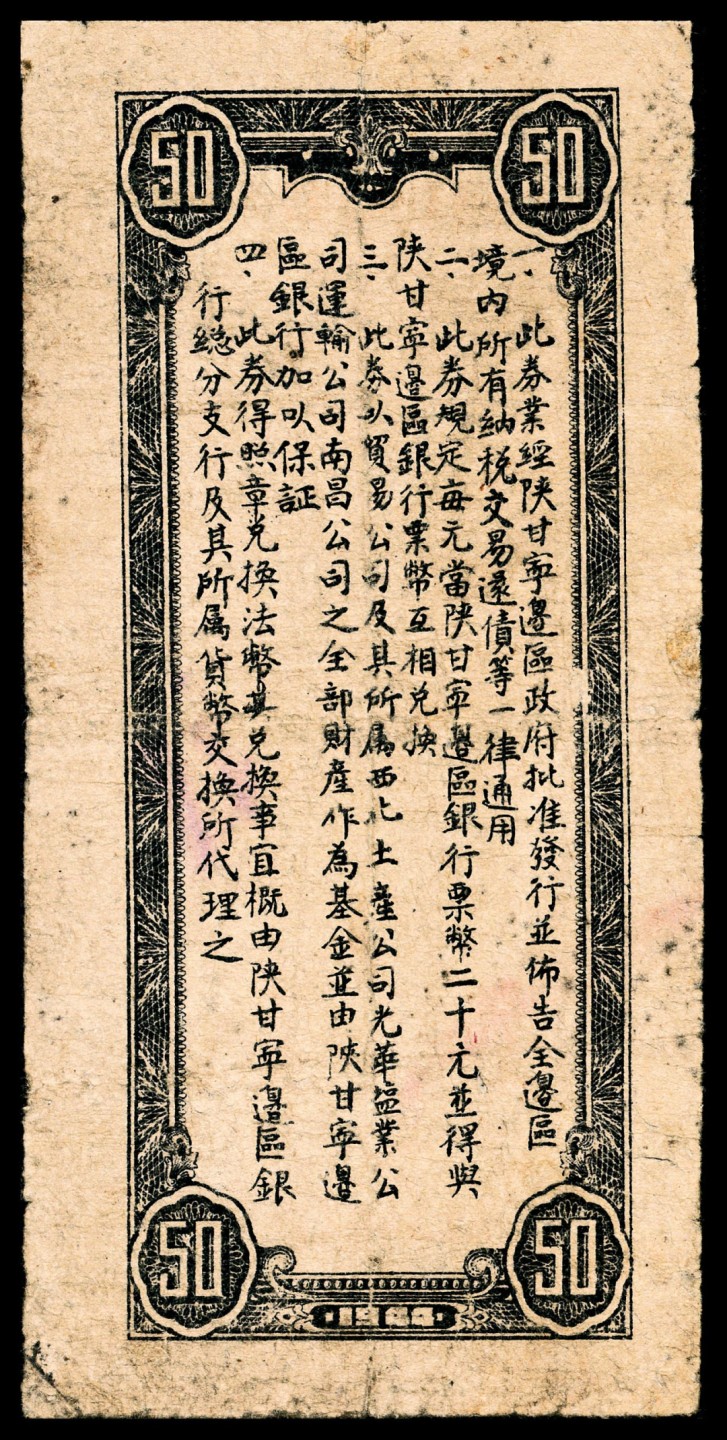 50
50
一、此券業經陝甘寧邊區政府批准發行並佈告全邊區
境内所有纳税交易還債等一律通用
二、此券規定每元當陝甘寧邊區銀行票幣二十元並得與
陝甘寧邊區銀行票幣互相兑換
三、此券以貿易公司及其所属西北土產公司光華盐業公
司運輸公司南昌公司之全部財產作為基金並由陝甘寧邊
區銀行加以保証
四、此券得照章兑換法幣其兑換事宜概由陝甘寧邊區銀
行總分支行及其所属貨幣交換所代理之
50
50
1944